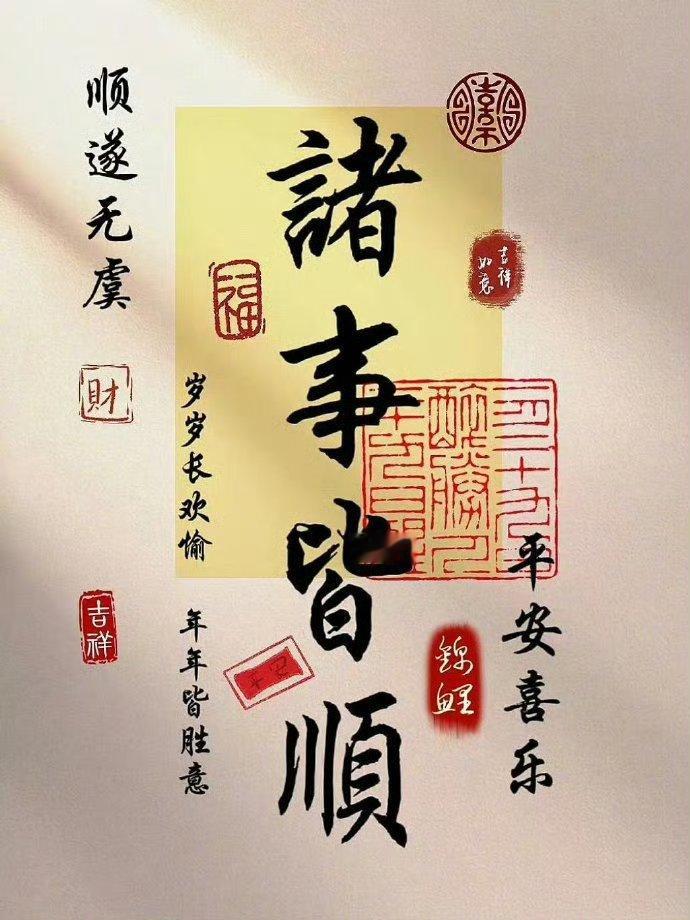 諸事皆順
顺遂无虞
岁岁长欢愉
年年皆胜意
平安喜乐
吉祥
如意
福
財
吉祥
平安
錦鯉